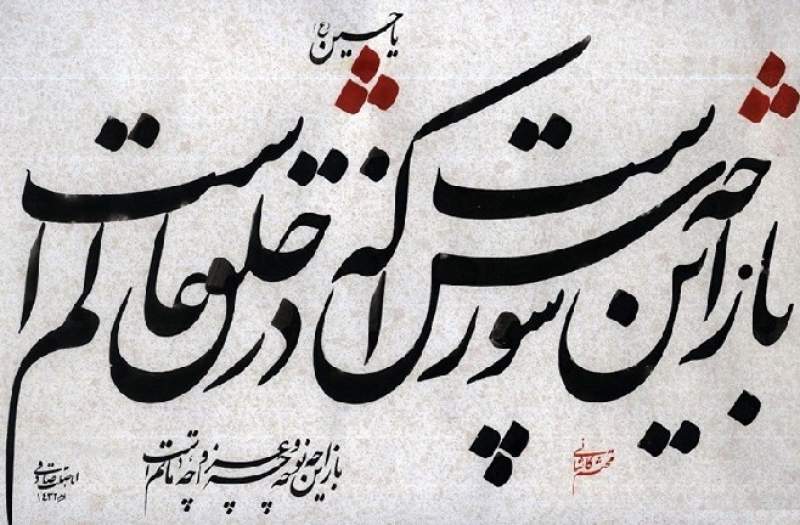 یا حسین (ع)
باز این چه شورش است که در خلق عالم است
باز این چه نوحه و چه عزا و چه ماتم است
محتشم کاشانی
۱۴۳۲